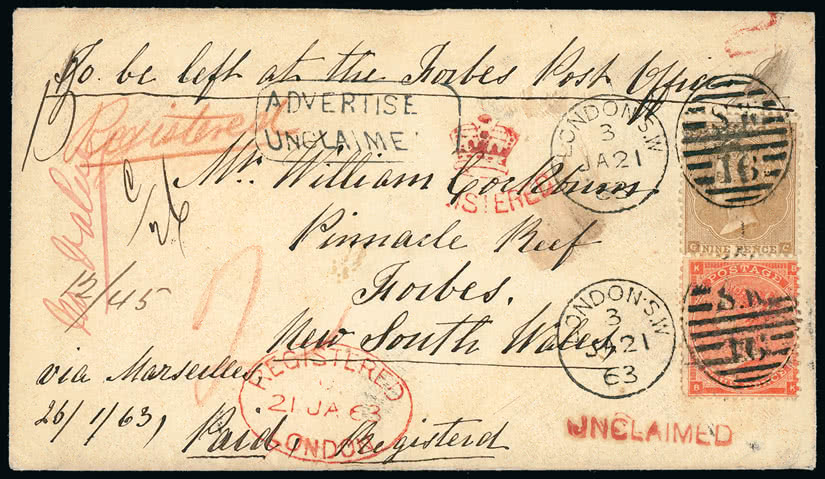 To be left at the Forbes Post Office
Registered
ADVERTISE
UNCLAIME
LONDON·S.W
3
JA21
63
S.W.
16
ISTERED
Mr. William Cockburn
Pinnacle Reef
Forbes.
New South Wales
NINE PENCE
G C
K B
POSTAGE
S.W.
16
B K
LONDON·S.W
3
JA21
63
12/45
REGISTERED
21 JA 63
LONDON
via Marseilles
26/1/63,
Paid, Registerd
UNCLAIMED